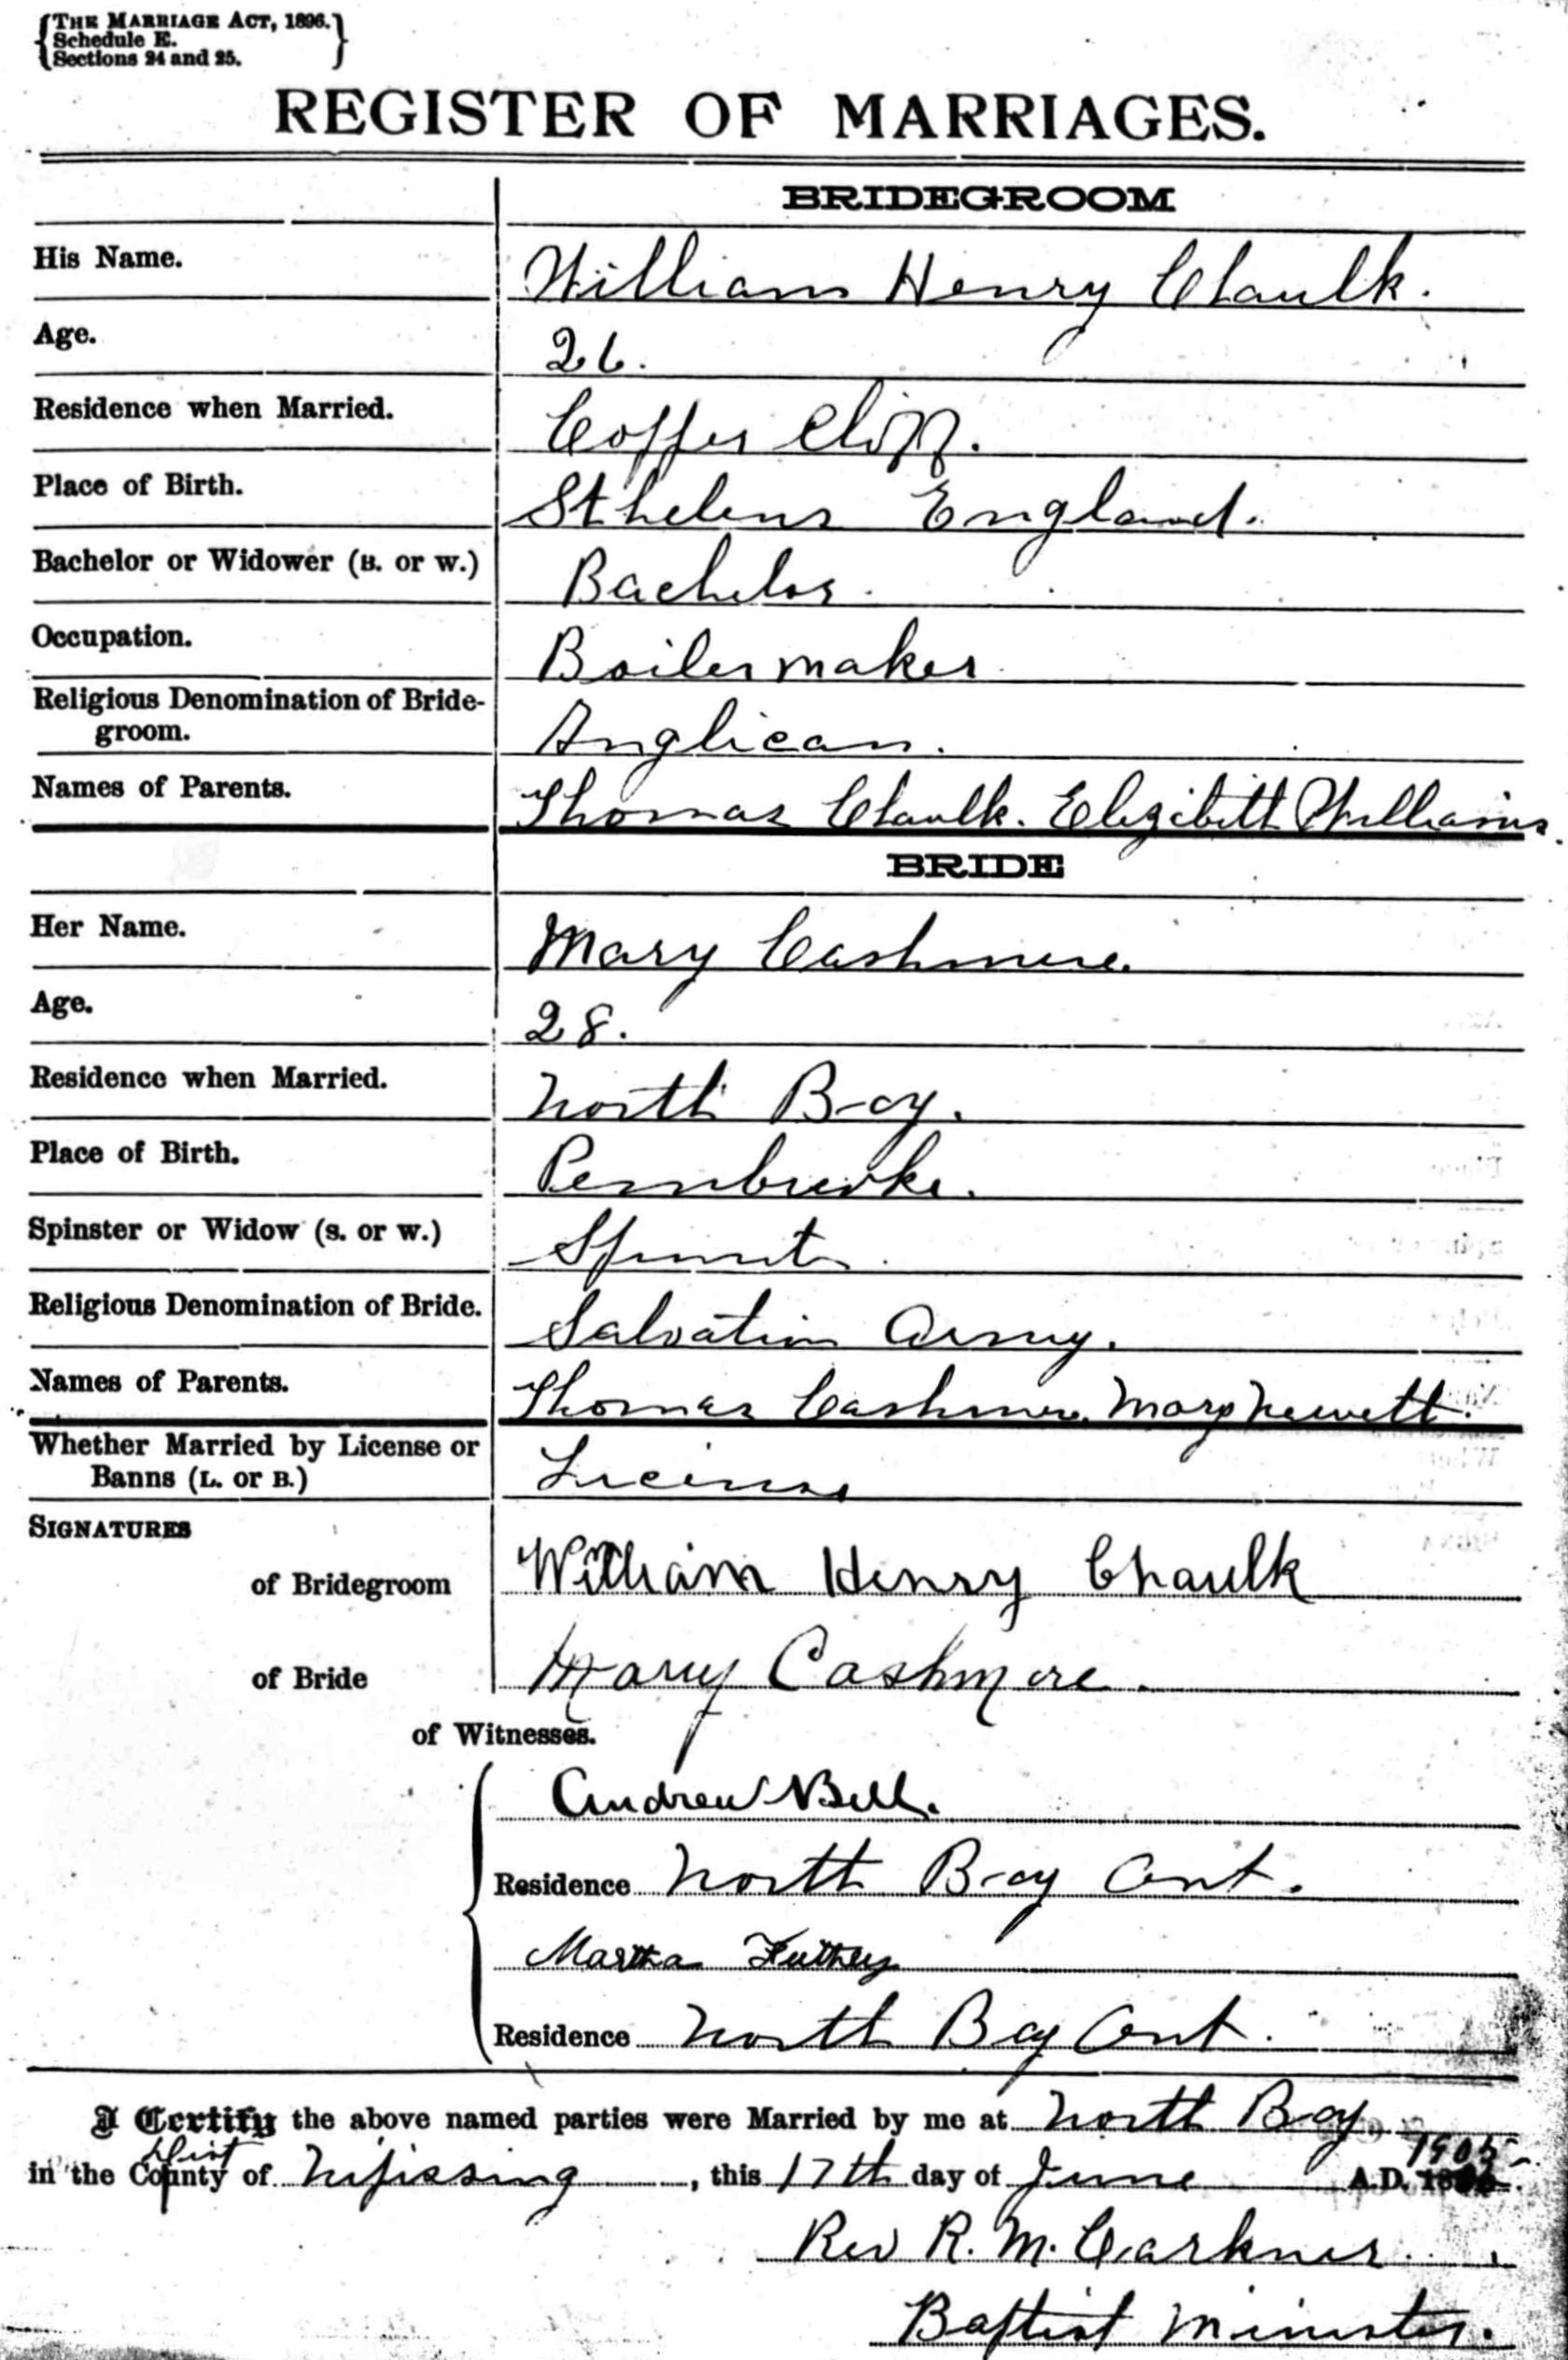 THE MARRIAGE ACT, 1896.
Schedule E.
Sections 24 and 25.
REGISTER OF MARRIAGES.
BRIDEGROOM
His Name. William Henry Chaulk.
Age. 26.
Residence when Married. Copper Cliff.
Place of Birth. St helens England.
Bachelor or Widower (B. or W.) Bachelor.
Occupation. Boiler maker
Religious Denomination of Bride- Anglican.
groom.
Names of Parents. Thomas Chaulk. Elizibeth Williams.
BRIDE
Her Name. Mary Cashmere.
Age. 28.
Residence when Married. North Bay.
Place of Birth. Pembrooke.
Spinster or Widow (S. or W.)
Religious Denomination of Bride. Salvation Army.
Names of Parents. Thomas Cashmere. Mary Hewett.
Whether Married by License or License
Banns (L. or B.)
SIGNATURES
of Bridegroom William Henry Chaulk
of Bride Mary Cashmore
of Witnesses.
Andrew Bell.
Residence North Bay Ont.
Martha
Residence North Bay Ont.
I Certify the above named parties were Married by me at North Bay
Dist 1905
in the County of Nipissing, this 17th day of June A.D. 18
Rev R. M. Carkner
Baptist Minister.